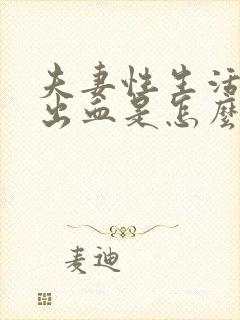 夫妻性生活
出血是怎麼
麦迪